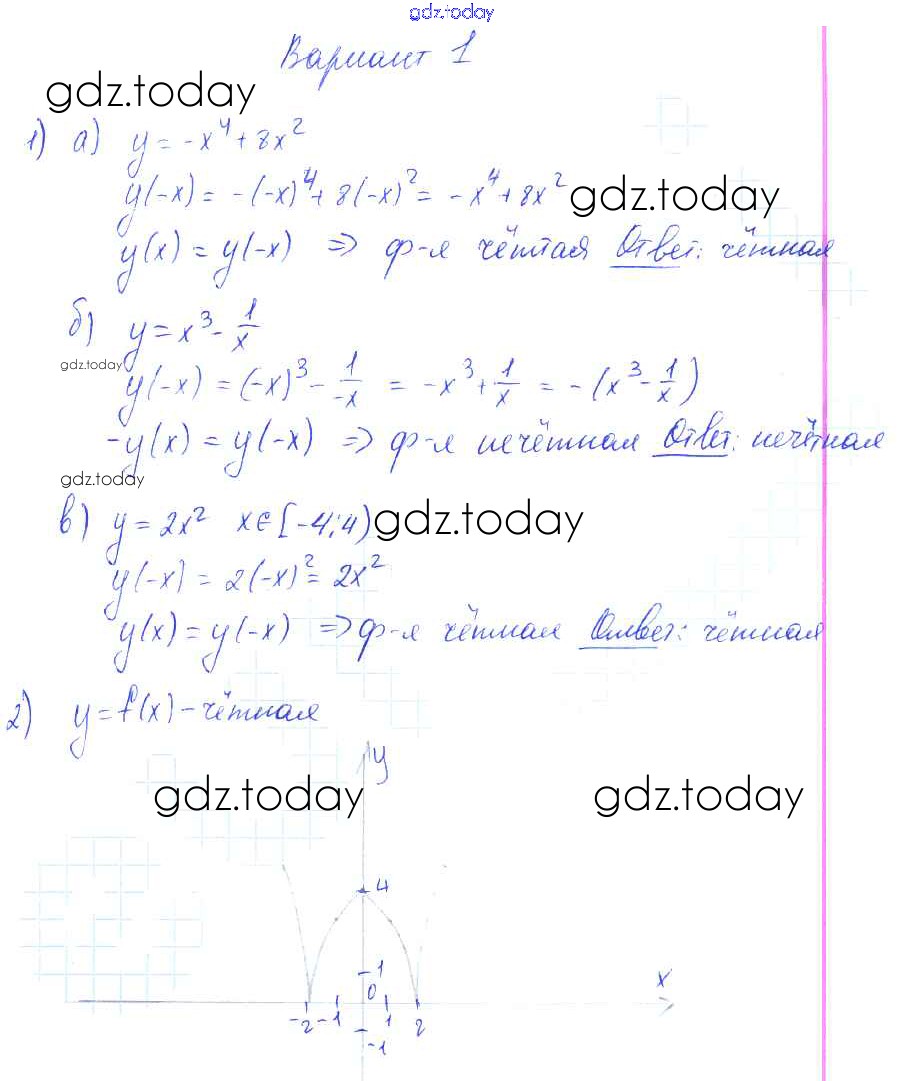 gdz.today
Вариант 1
gdz.today
1) а) y = -x⁴ + 8x²
y(-x) = -(-x)⁴ + 8(-x)² = -x⁴ + 8x² gdz.today
y(x) = y(-x) => ф-я чётная Ответ: чётная
б) y = x³ - 1/x
gdz.today
y(-x) = (-x)³ - 1/-x = -x³ + 1/x = -(x³ - 1/x)
-y(x) = y(-x) => ф-я нечётная Ответ: нечётная
gdz.today
в) y = 2x² x∈[-4;4) gdz.today
y(-x) = 2(-x)² = 2x²
y(x) = y(-x) => ф-я чётная Ответ: чётная
2) y = f(x) - чётная
y
gdz.today gdz.today
4
1
x
0
-2 -1 1 2
-1